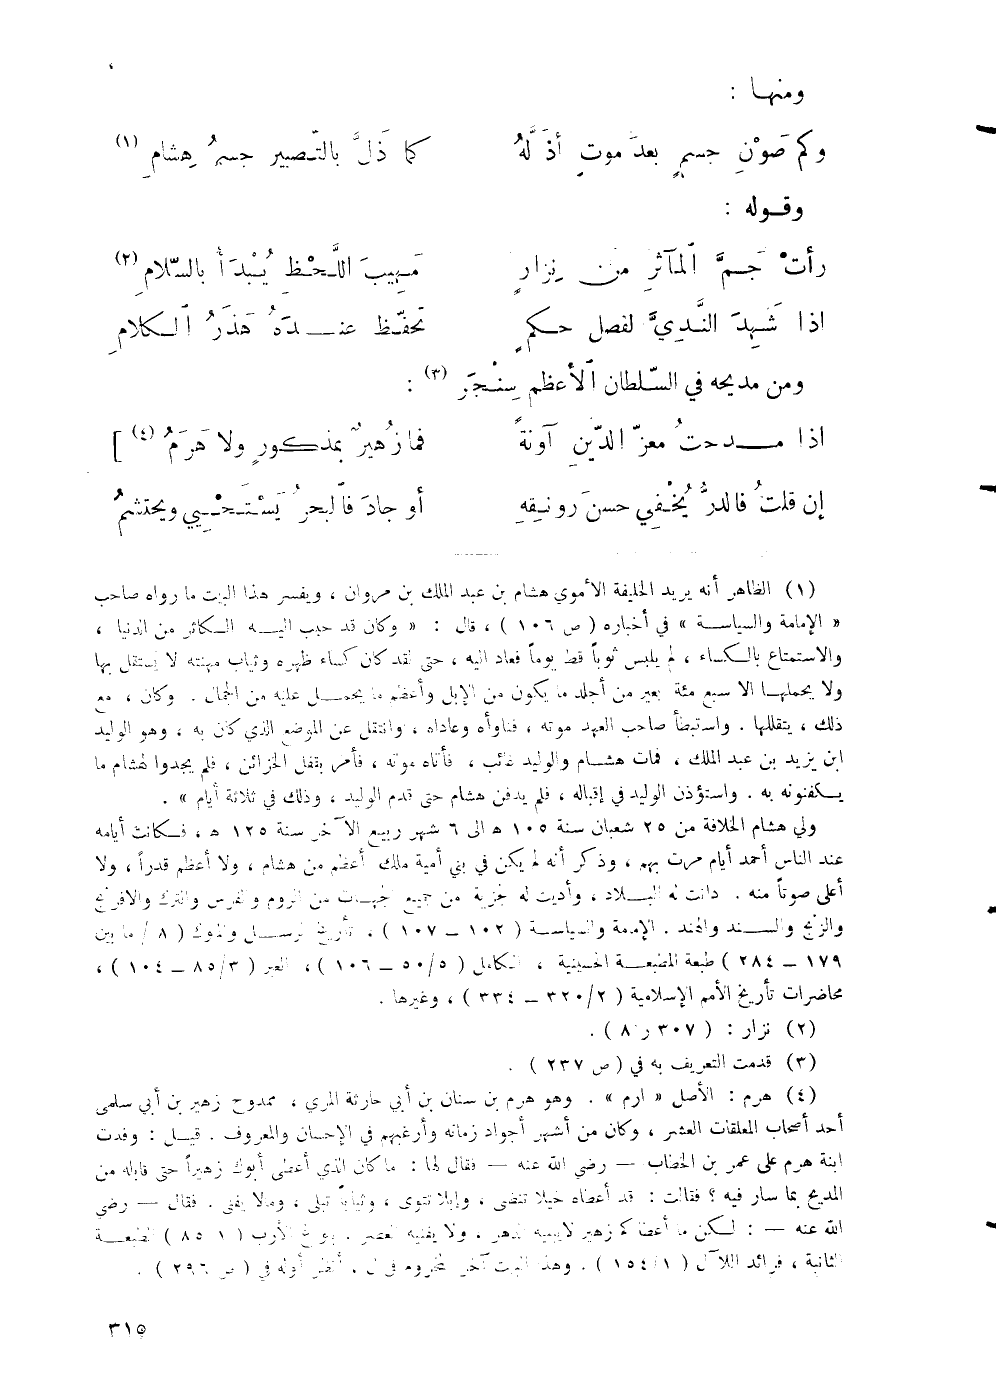 ومنها :
وكم صَوْنِ جسمٍ بعدَ موتٍ أذَلَّهُ كما ذَلَّ بالتّصبير جسمُ هِشامِ (١)
وقوله :
رأتْ جَمَّ المآثرِ من نِزارٍ مَهِيبَ اللَّحْظِ يُبْدَأ بالسّلامِ (٢)
اذا شَهِدَ النَّدِيَّ لفصل حكمٍ تحفّظ عندهُ هَذَرُ الكلامِ
ومن مديحه في السّلطان الأعظم سِنْجَر (٣) :
اذا مدحتُ معزّ الدّينِ آونةً فما زُهيرٌ بمذكورٍ ولا هَرَمُ (٤) ]
إن قلتُ فالدرُّ يُخْفِي حسنَ رونقِهِ أو جادَ فالبحرُ يَسْتَحْيِي ويحتشمُ
(١) الظاهر أنه يريد الخليفة الأموي هشام بن عبد الملك بن مروان ، ويفسر هذا البيت ما رواه صاحب
« الإمامة والسياسة » في أخباره ( ص ١٠٦ ) ، قال : « وكان قد حبب اليه التكاثر من الدنيا ،
والاستمتاع بالكساء ، لم يلبس ثوباً قط يوماً فعاد اليه ، حتى لقد كان كساء ظهره وثياب مهنته لا يستقل بها
ولا يحملها الا سبع مئة بعير من أجلد ما يكون من الإبل وأعظم ما يحمل عليه من الجمال . وكان ، مع
ذلك ، يتقللها . واستبطأ صاحب العهد موته ، فناوأه وعاداه ، وانتقل عن الموضع الذي كان به ، وهو الوليد
ابن يزيد بن عبد الملك ، فمات هشام والوليد غائب ، فأتاه موته ، فأمر بقفل الخزائن ، فلم يجدوا لهشام ما
يكفنونه به . واستؤذن الوليد في إقباله ، فلم يدفن هشام حتى قدم الوليد ، وذلك في ثلاثة أيام » .
ولي هشام الخلافة من ٢٥ شعبان سنة ١٠٥ ه الى ٦ شهر ربيع الآخر سنة ١٢٥ ه ، فكانت أيامه
عند الناس أحمد أيام مرت بهم ، وذكر أنه لم يكن في بني أمية ملك أعظم من هشام ، ولا أعظم قدراً ، ولا
أعلى صوتاً منه . دانت له البلاد ، وأديت له الجزية من جميع الجهات من الروم والفرس والترك والافرنج
والزنج والسند والهند . الإمامة والسياسة ( ١٠٢ – ١٠٧ ) ، تأريخ الرسل والملوك ( ٨ / ما بين
١٧٩ – ٢٨٤ ) طبعة المطبعة الحسينية ، الكامل ( ٥/٥٠ – ١٠٦ ) ، العبر ( ٣/٨٥ – ١٠٤ ) ،
محاضرات تأريخ الأمم الإسلامية ( ٢/٣٢٠ – ٣٣٤ ) ، وغيرها .
(٢) نزار : ( ٣٠٧ ر ٨ ) .
(٣) قدمت التعريف به في ( ص ٢٣٧ ) .
(٤) هرم : الأصل « ارم » . وهو هرم بن سنان بن أبي حارثة المري ، ممدوح زهير بن أبي سلمى
أحد أصحاب المعلقات العشر ، وكان من أشهر أجواد زمانه وأرغبهم في الإحسان والمعروف . قيل : وفدت
ابنة هرم على عمر بن الخطاب – رضي الله عنه – فقال لها : ما كان الذي أعطى أبوك زهيراً حتى قابله من
المديح بما سار فيه ؟ فقالت : قد أعطاه خيلا تنضى ، وإبلا تتوى ، وثياباً تبلى ، ومالا يفنى . فقال – رضي
الله عنه – : لكن ما أعطاكم زهير لا يبليه الدهر ، ولا يفنيه العصر . بلوغ الأرب ( ١ ٨٥ ) الطبعة
الثانية ، فرائد اللآل ( ١/١٥٤ ) . وهذا البيت آخر المخروم في ل . أنظر أوله في ( ص ٢٩٦ ) .
٣١٥